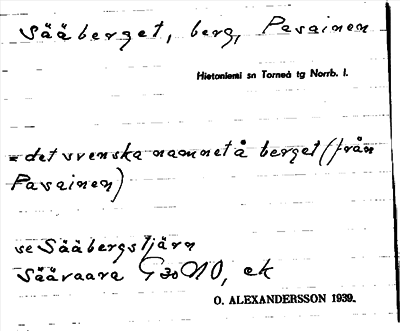 Sääberget, berg, Pavainen
Hietaniemi sn Torneå tg Norrb. l.
= det svenska namnet å berget (från
Pavainen)
se Sääbergstjärn
Säävaara G 30 NO, ek
O. ALEXANDERSSON 1939.